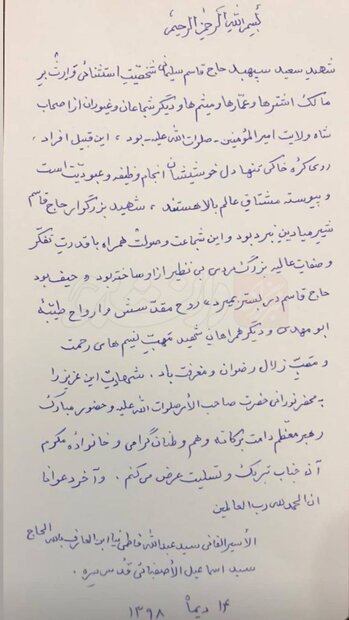 بسم الله الرحمن الرحیم
شهید سعید سپهبد حاج قاسم سلیمانی شخصیت استثنائی و وارث بر
مالک اشترها و عمارها و میثم ها و دیگر شجاعان و غیوران از اصحاب
شاه ولایت امیرالمؤمنین ـ صلوات الله علیه ـ بود، این قبیل افراد،
روی کره خاکی تنها دل خوشیشان انجام وظیفه و عبودیت است
و پیوسته مشتاق عالم بالا هستند، شهید بزرگوار حاج قاسم
شیر میادین نبرد بود و این شجاعت و صولت همراه با قدرت تفکر
و صفات عالیه بزرگ مردی بی نظیر از او ساخته بود و حیف بود
حاج قاسم در بستر بمیرد، روح مقدسش و ارواح طیبهٔ
ابو مهدی و دیگر همراهان شهید مهبّ نسیم های رحمت
و مصبّ زلال رضوان و مغفرت باد. شهادت این عزیز را
به محضر نورانی حضرت صاحب الأمر صلوات الله علیه و حضور مبارک
رهبر معظم دامت برکاته و هم وطنان گرامی و خانواده مکرم
آن جناب تبریک و تسلیت عرض می کنم. و آخر دعوانا
ان الحمد لله رب العالمین
الأسیر الفانی سید عبدالله فاطمی نیا ابن العارف بالله الحاج
سید اسماعیل الأصفیائی قدس سره.
۱۴ دیماه ۱۳۹۸